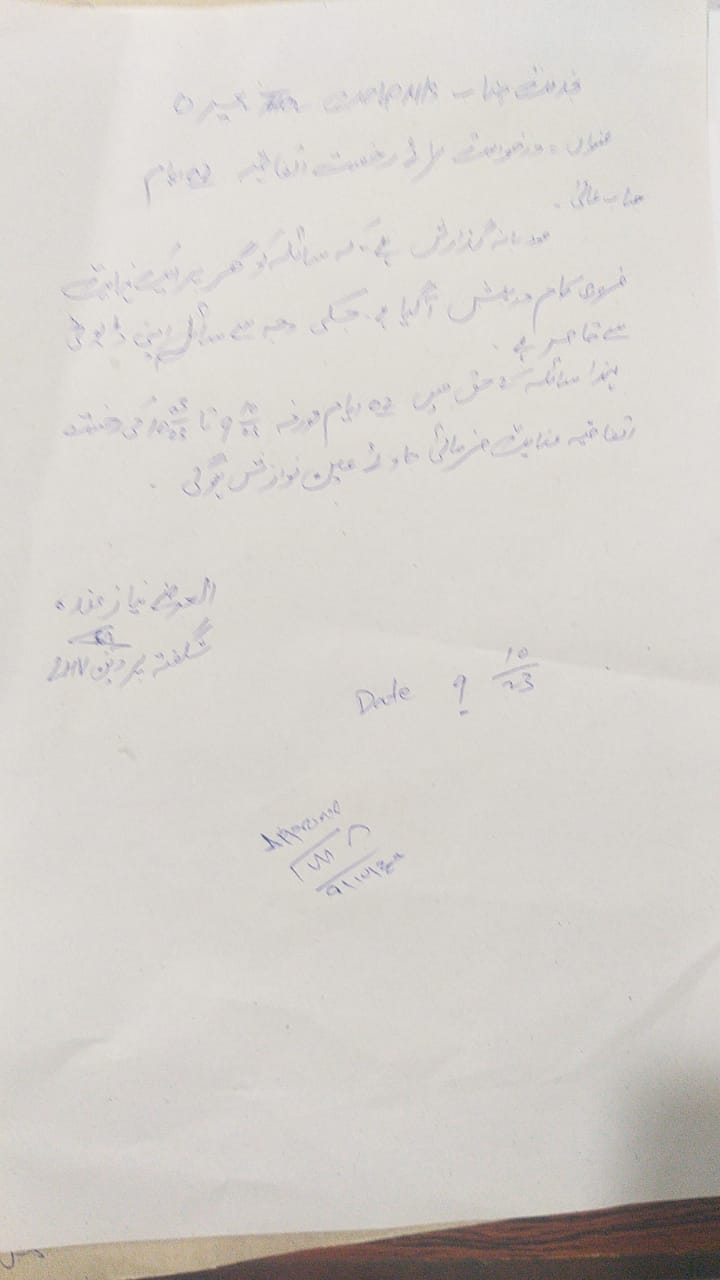 بخدمت جناب
عنوان: درخواست برائے رخصت اتفاقیہ ایام
جناب عالی۔
مودبانہ گزارش ہے کہ سائلہ کو گھر پر ایک نہایت
ضروری کام درپیش آگیا ہے۔ جسکی وجہ سے سائلہ اپنی ڈیوٹی
سے قاصر ہے۔
لہذا سائلہ کے حق میں ایام مورخہ 9 تا کی رخصت
اتفاقیہ عنایت فرمائی جاوے عین نوازش ہوگی۔
العارض نیازمندہ
شگفتہ پروین LHV
Date 9 10/23
Approved